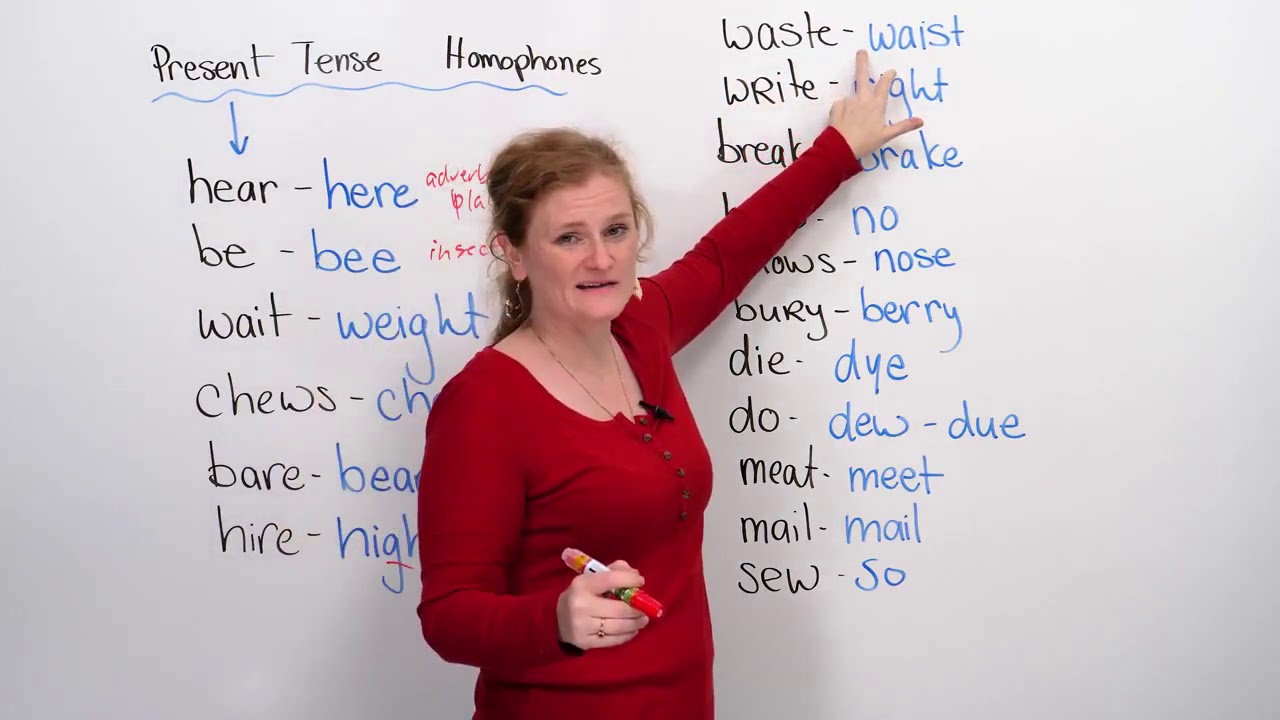 Present Tense Homophones
hear - here adverb
be - bee
wait - weight
chews -
bare - bear
hire -
waste - waist
write -
break
- no
- nose
bury - berry
die - dye
do - dew - due
meat - meet
mail - mail
sew - so